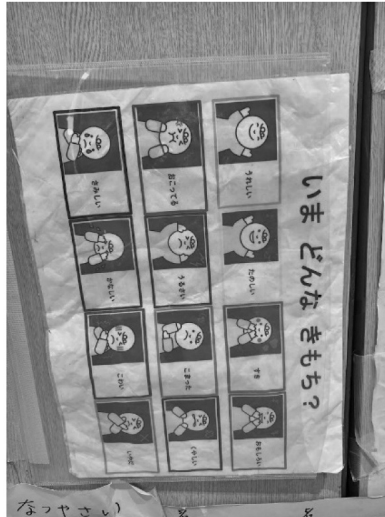 いま どんな きもち?
うれしい
たのしい
すき
おもしろい
おこってる
うるさい
こまった
くやしい
さみしい
かなしい
こわい
いやだ
なつやさい